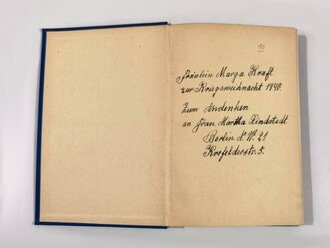 10.
Fräulein Marga Kraft
zur Kriegsweihnacht 1940.
Zum Andenken
an Frau Martha Lindstedt
Berlin N.W. 21
Krefelderstr. 5.